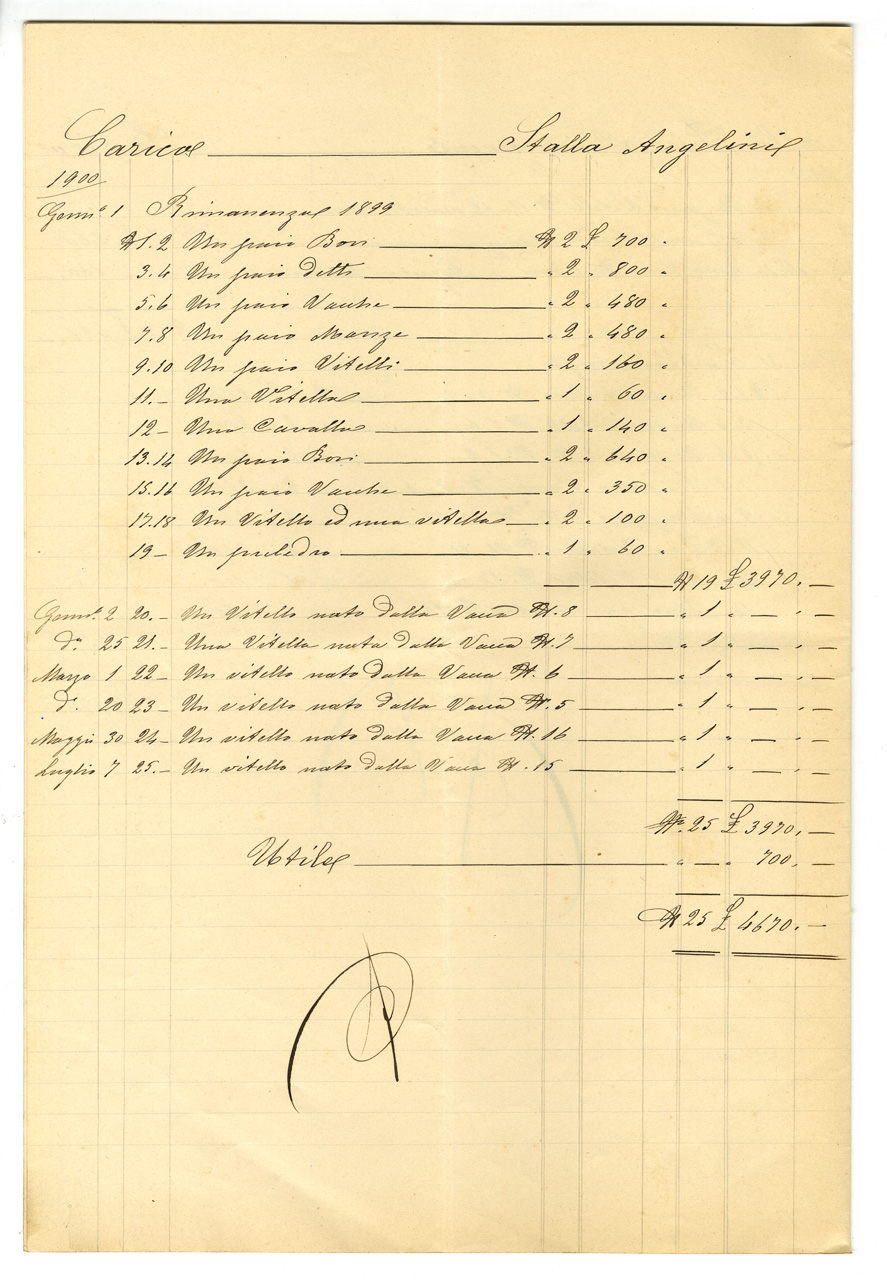 Carico Stalla Angelini
1900
Genn.º 1 Rimanenza 1899
N 1.2 Un paio Bovi N 2 £ 700 "
3.4 Un paio detti " 2 " 800 "
5.6 Un paio Vacche " 2 " 480 "
7.8 Un paio Manze " 2 " 480 "
9.10 Un paio Vitelli " 2 " 160 "
11.- Una Vitella " 1 " 60 "
12- Una Cavalla " 1 " 140 "
13.14 Un paio Bovi " 2 " 640 "
15.16 Un paio Vacche " 2 " 350 "
17.18 Un Vitello ed una vitella " 2 " 100 "
19- Un puledro " 1 " 60 "
N 19 £ 3970.-
Genn.º 2 20.- Un Vitello nato dalla Vacca N. 8 " 1 " — . —
d.º 25 21.- Una Vitella nata dalla Vacca N. 7 " 1 " — . —
Marzo 1 22- Un vitello nato dalla Vacca N. 6 " 1 " — . —
d.º 20 23- Un vitello nato dalla Vacca N. 5 " 1 " — . —
Maggio 30 24- Un vitello nato dalla Vacca N. 16 " 1 " — . —
Luglio 7 25.- Un vitello nato dalla Vacca N. 15 " 1 " — . —
N.º 25 £ 3970.-
Utile " — " 700.-
N 25 £ 4670.-